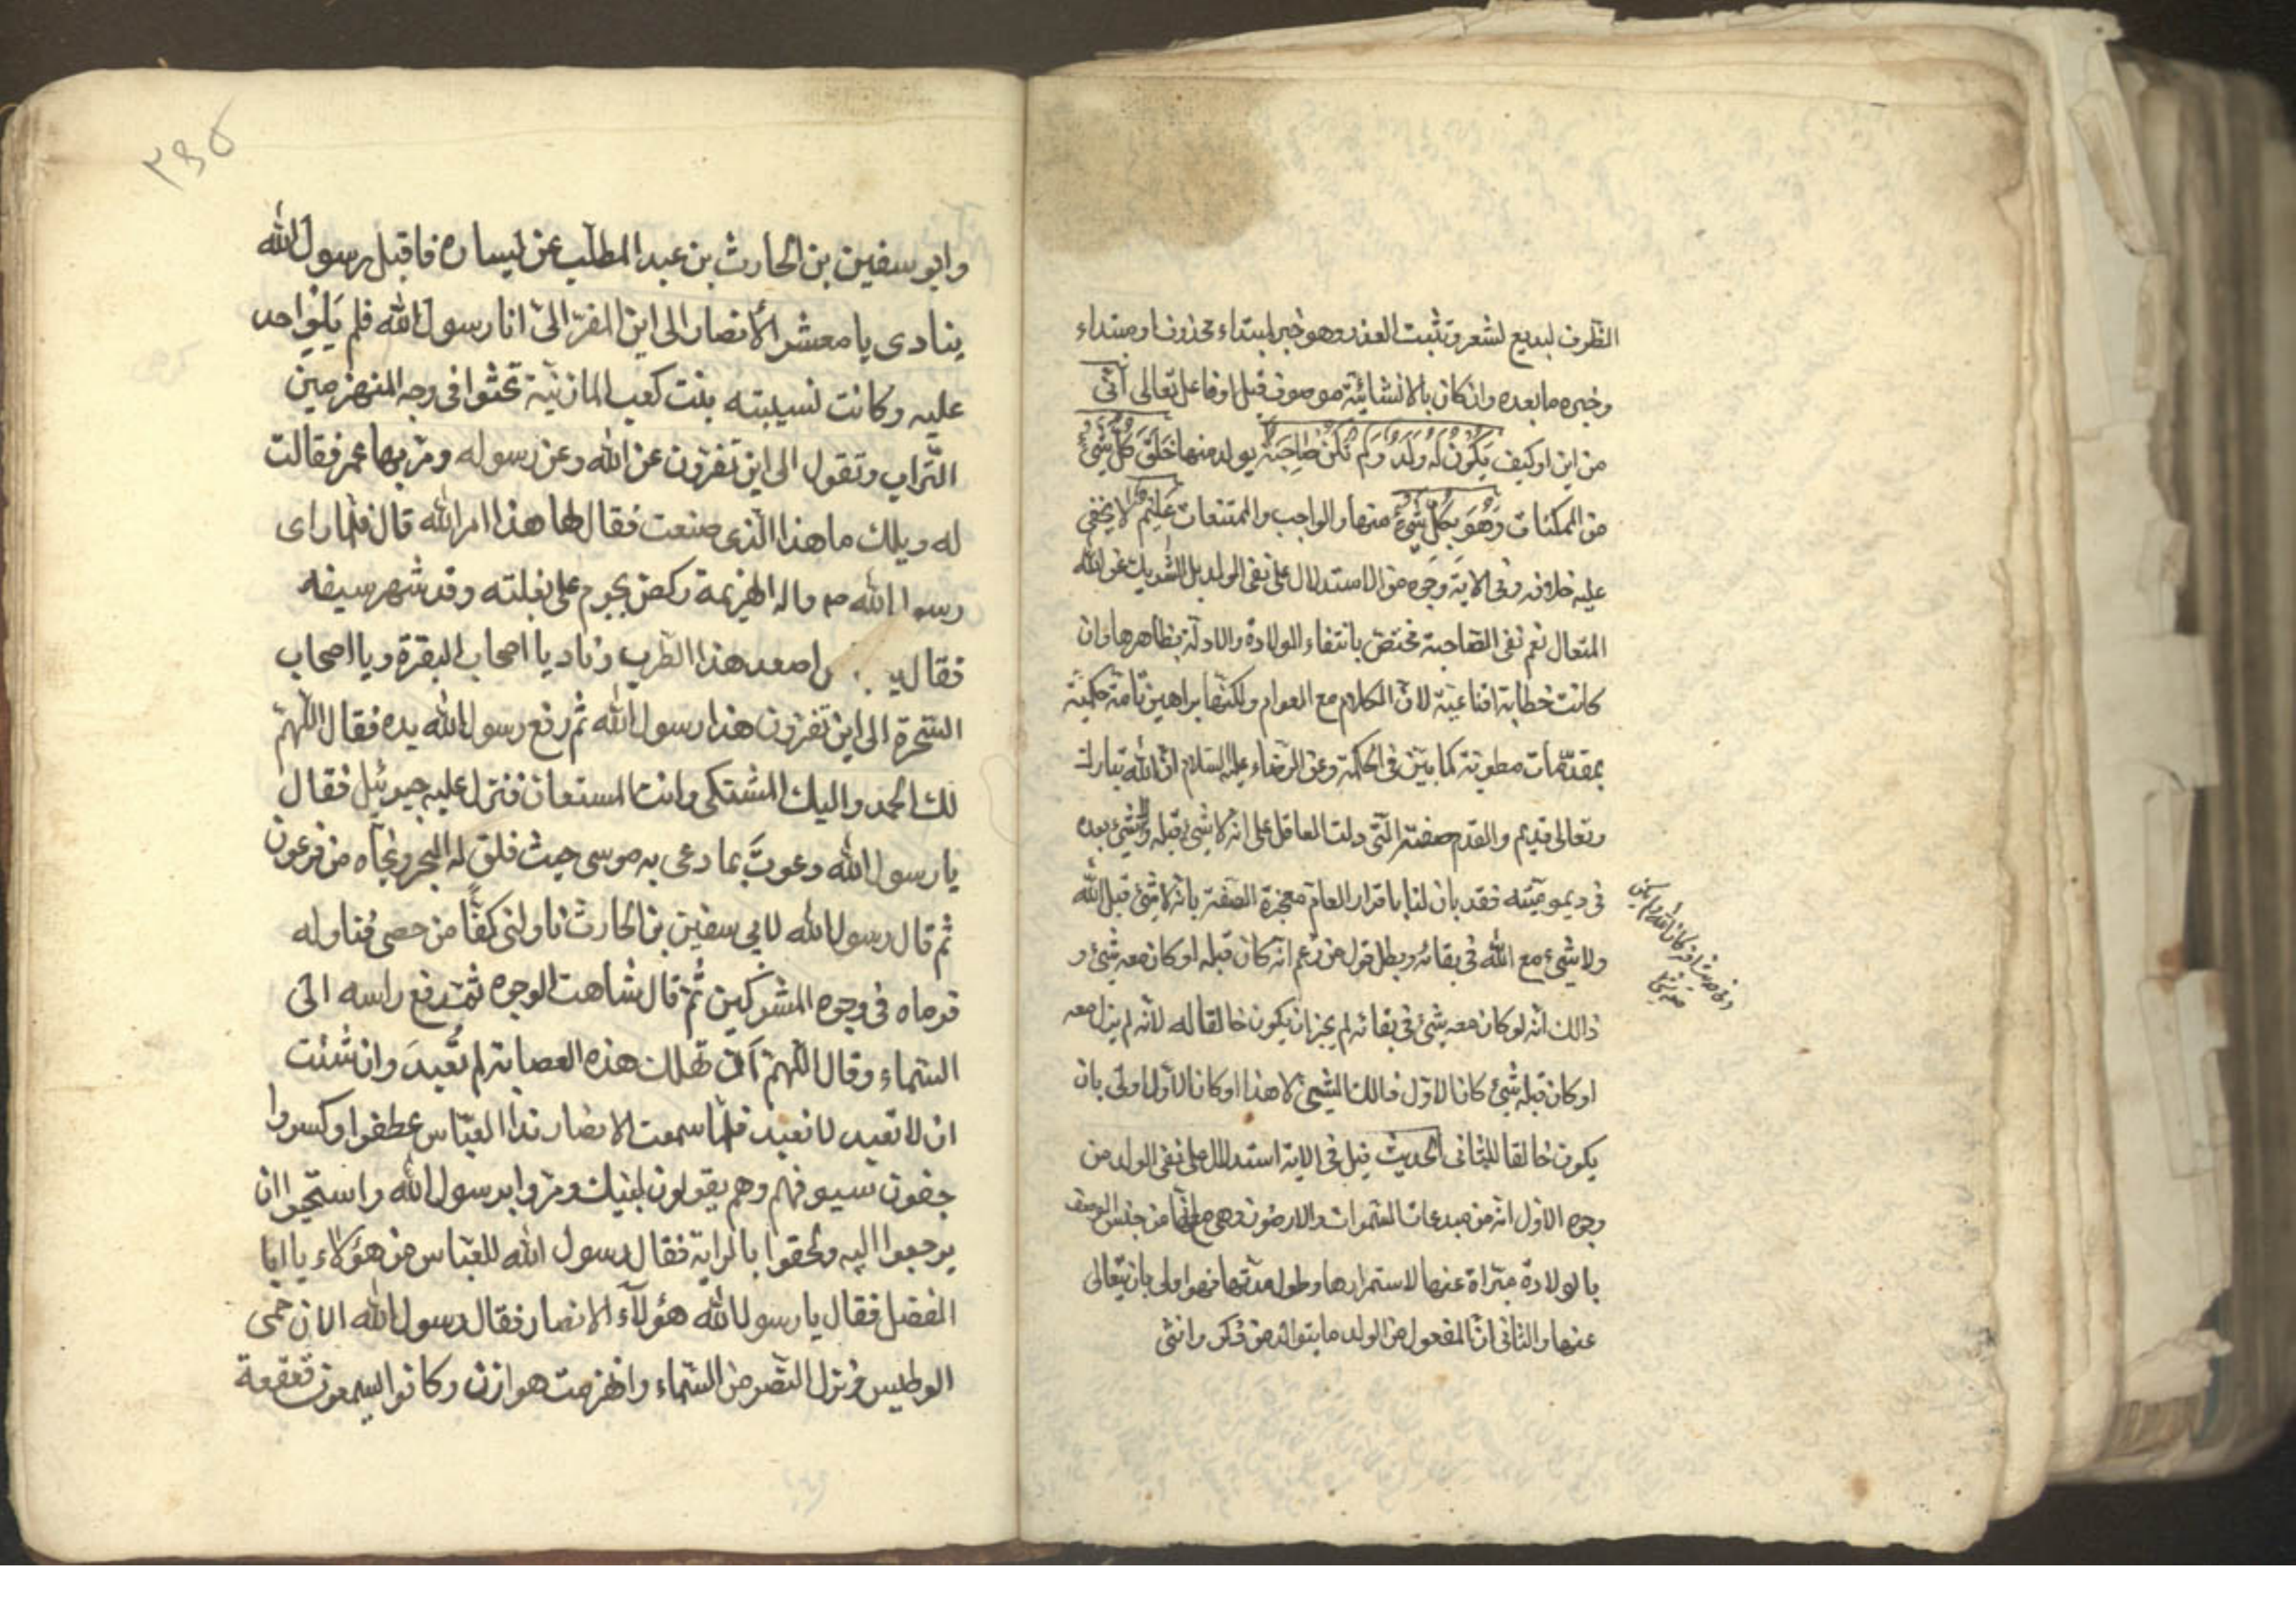 الظرف لبديع لشعر وتثبت العذر وهو خبر لمبتداء محذوف او مبتداء
وخبره ما بعده وان كان بالانشائية موصوف قبل او فاعل تعالى أنى
من اين او كيف يَكُونُ لَهُ وَلَدٌ وَلَم تَكُنْ لَهُ صاحِبَةٌ يولد منها خَلَقَ كُلَّ شَيْءٍ
من الممكنات وَهُوَ بِكُلِّ شَيْءٍ منها والواجب والممتنعات عَلِيمٌ لا يخفى
عليه خلافه وفى الاية وجوه من الاستدلال على نفى الولد بل الشريك عن الله
المتعال نعم نفى الصاحبة مختص بانتفاء الولادة والادلة بظاهرها وان
كانت خطابة اقناعية لان الكلام مع العوام ولكنها براهين تامة حكمية
بمقدمات مطوية كما بين فى الحكمة وعن الرضاء عليه السلام ان الله تبارك
وتعالى قديم والقدم صفته التى دلت العاقل على انه لا شيء قبله ولا شيء بعده
فى ديموميته فقد بان لنا باقرار العام معجزة الصفة بانه لا شيء قبل الله
ولا شيء مع الله فى بقائه وبطل قول من زعم انه كان قبله او كان معه شيء و
ذالك انه لو كان معه شيء فى بقائه لم يجز ان يكون خالقا له لانه لم يزل معه
او كان قبله شيء كان الاول ذالك الشيء لا هذا او كان الاول اولى بان
يكون خالقا للثانى الحديث قيل فى الاية استدلال على نفى الولد من
وجوه الاول انه من مبدعات السموات والارضون وهى مع انها من جنس الوصف
بالولادة مبراة عنها لاستمرارها وطول مدتها فهو اولى بان يتعالى
عنها والثانى ان المفعول من الولد ما يتوالد من ذكر وانثى
وابو سفين بن الحارث بن عبد المطلب عن يساره فاقبل رسول الله
ينادى يا معشر الأنصار الى اين المفر الىّ انا رسول الله فلم يَلْوِ احد
عليه وكانت نسيبته بنت كعب المازنية تحثوا فى وجه المنهزمين
التراب وتقول الى اين تفرون عن الله وعن رسوله ومر بها عمر فقالت
له ويلك ما هذا الذى صنعت فقال لها هذا امر الله قال فلما راى
رسول الله ص واله الهزيمة ركض يحوم على بغلته وقد شهر سيفه
فقال يا اصعد هذا الظرب وناد يا اصحاب البقرة ويا اصحاب
الشجرة الى اين تفرون هذا رسول الله ثم رفع رسول الله يده فقال اللهم
لك الحمد واليك المشتكى وانت المستعان فنزل عليه جبرئيل فقال
يا رسول الله دعوتَ بما دعى به موسى حيث فلق له البحر ونجاه من فرعون
ثم قال رسول الله لابى سفين بن الحارث ناولنى كفًّا من حصى فناوله
فرماه فى وجوه المشركين ثُمّ قال شاهت الوجوه ثمّ رفع راسه الى
السماء وقال اللهم ان تهلك هذه العصابة لم تُعبدَ وان شئت
ان لا تعبد لا تعبد فلما سمعت الانصار ندا العباس عطفوا وكسروا
جفون سيوفهم وهم يقولون لبيك ومروا برسول الله واستحيوا ان
يرجعوا اليه ولحقوا بالراية فقال رسول الله للعباس من هؤلاء يا ابا
الفضل فقال يا رسول الله هؤلآء الانصار فقال رسول الله الان حمى
الوطيس ونزل النصر من السماء وانهزمت هوازن وكانوا يسمعون قعقعة